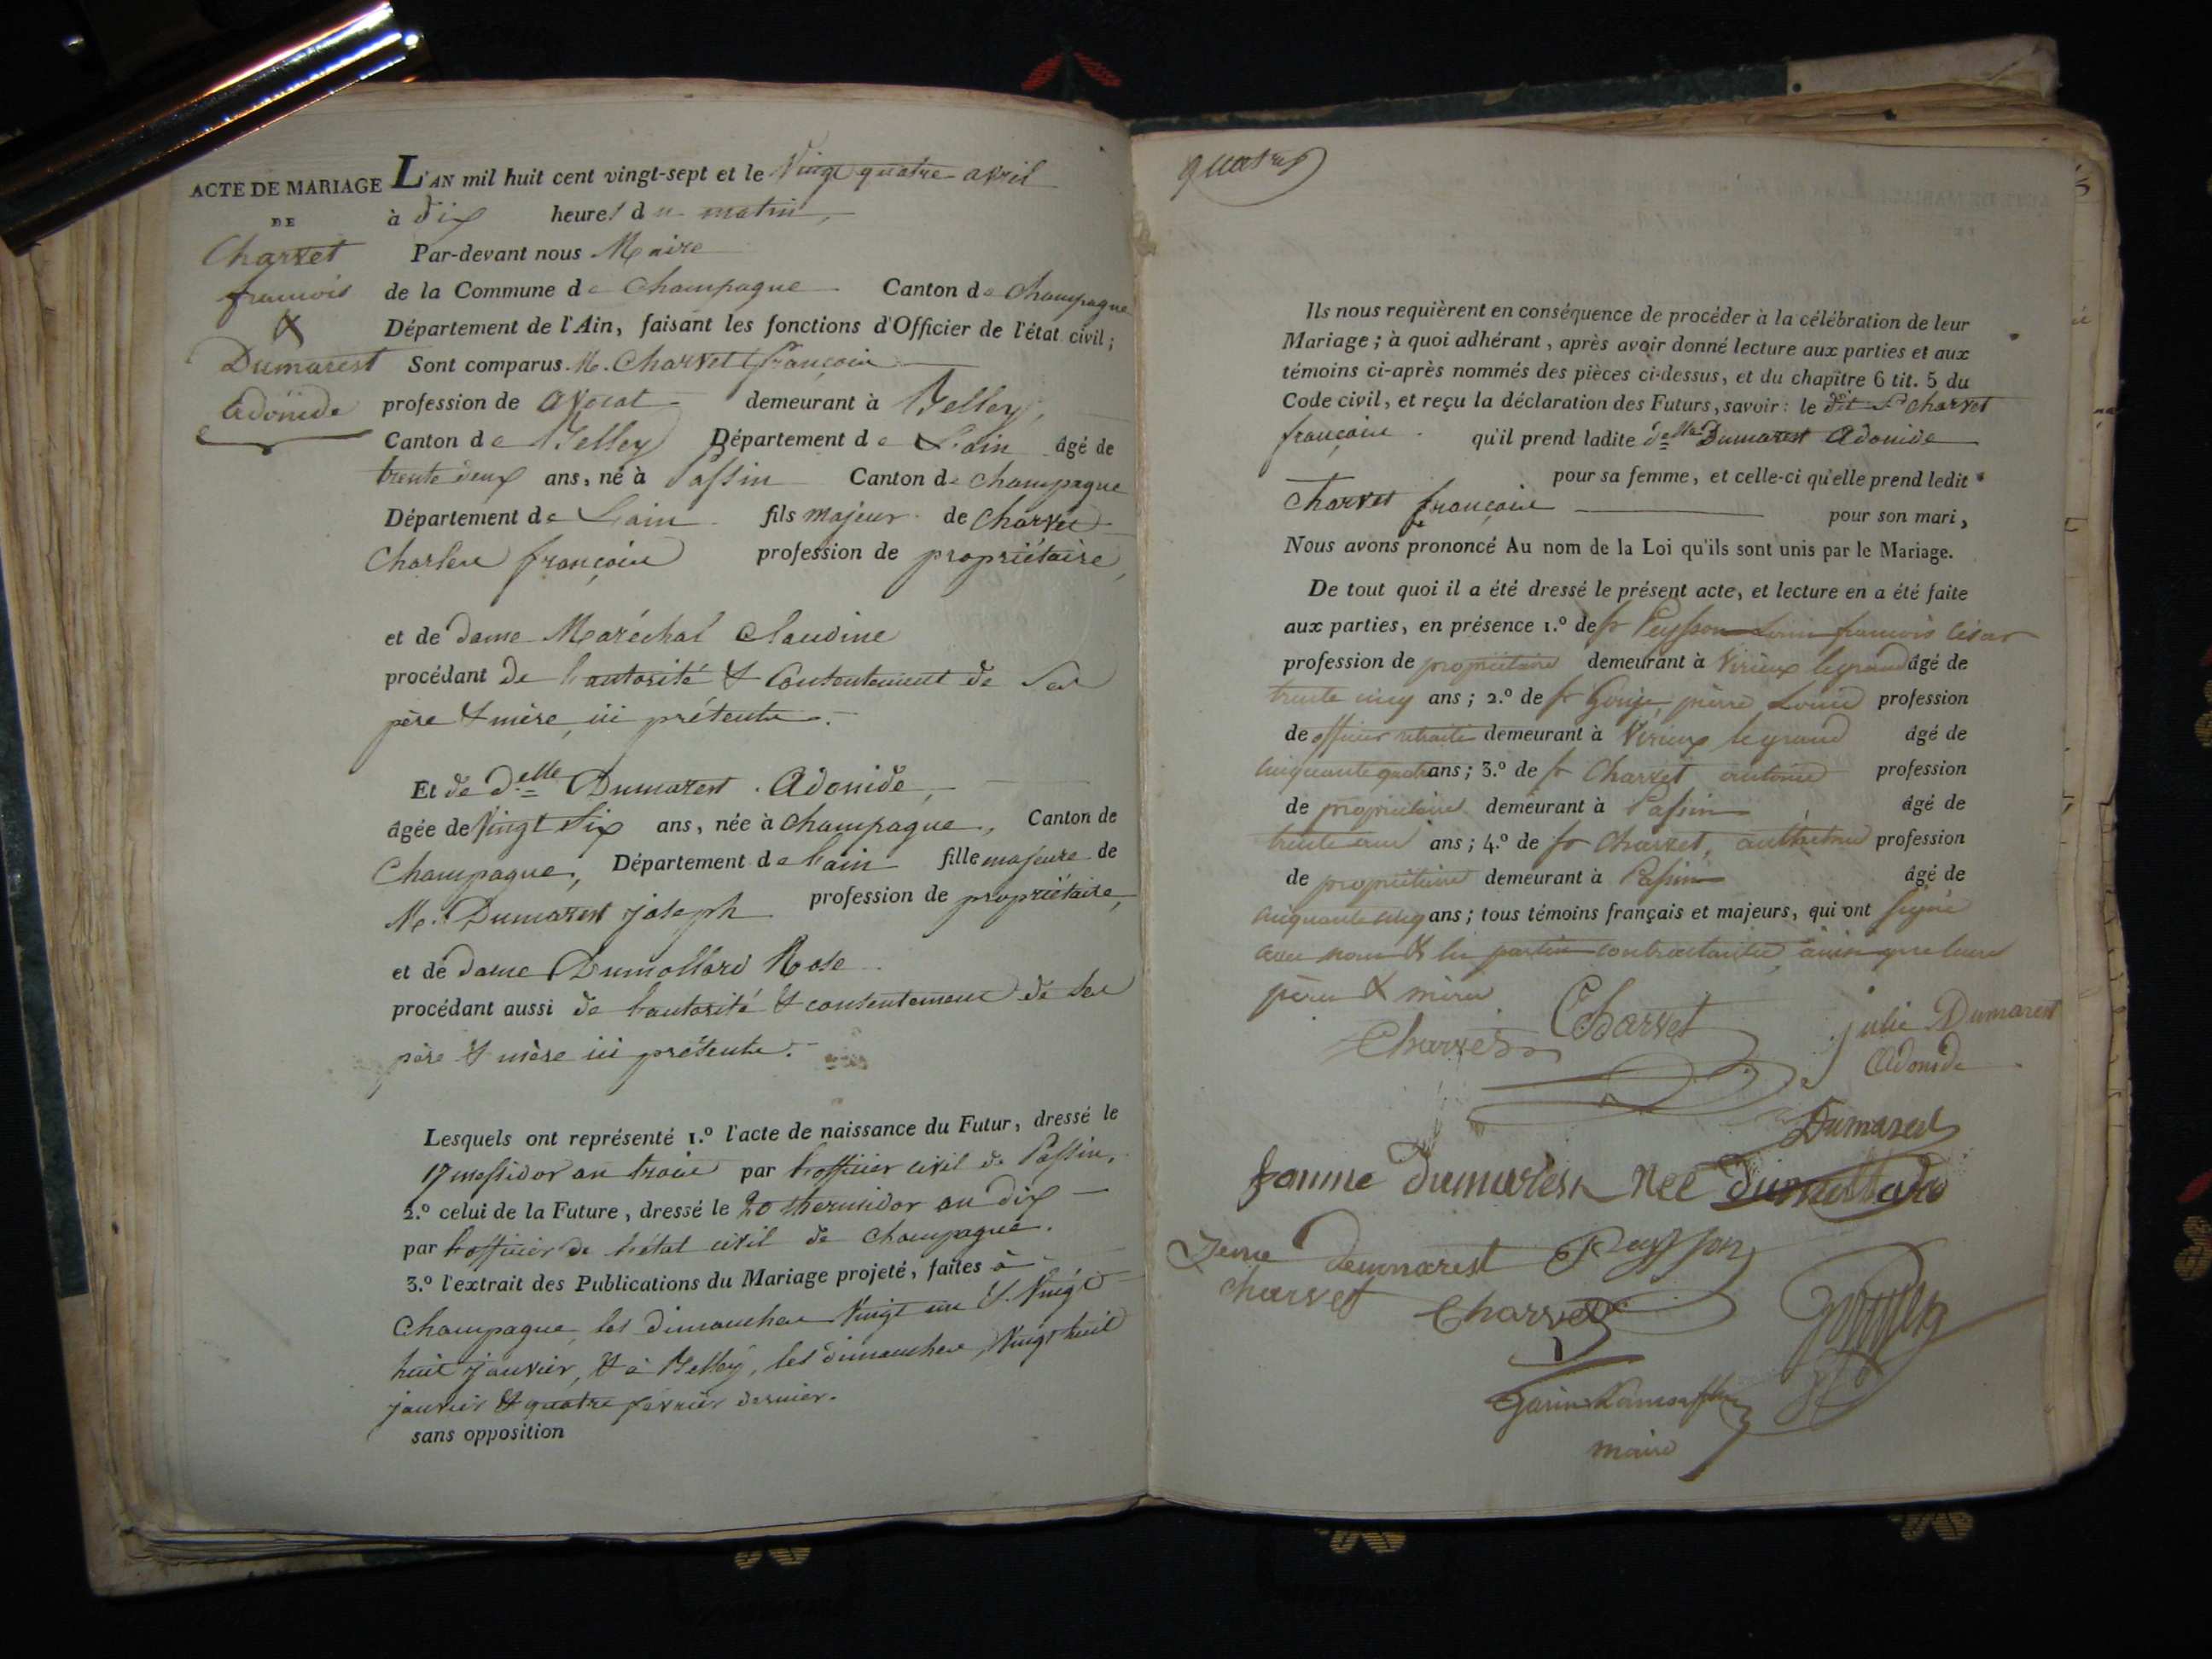 ACTE DE MARIAGE
DE
Charvet
francois
&
Dumarest
adonide
L'AN mil huit cent vingt-sept et le Vingt quatre avril
à dix heures du matin,
Par-devant nous Maire
de la Commune de Champagne Canton de Champagne
Département de l'Ain, faisant les fonctions d'Officier de l'état civil;
Sont comparus M. Charvet françois
profession de avocat demeurant à Belley,
Canton de Belley Département de L'ain âgé de
trente deux ans, né à Passin Canton de Champagne
Département de L'ain fils majeur de Charvet
Charles françois profession de propriétaire,
et de dame Maréchal Claudine
procédant de l'autorité & Consentement de Ses
père & mère ici présents.
Et de d.elle Dumarest Adonide,
âgée de Vingt Six ans, née à Champagne, Canton de
Champagne, Département de l'ain fille majeure de
M. Dumarest joseph profession de propriétaire,
et de dame Dumollard Rose
procédant aussi de l'autorité & consentement de ses
père & mère ici présents.
Lesquels ont représenté 1.º l'acte de naissance du Futur, dressé le
17 messidor an trois par l'officier civil de Passin,
2.º celui de la Future, dressé le 20 thermidor an dix
par l'officier de l'état civil de Champagne.
3.º l'extrait des Publications du Mariage projeté, faites à
Champagne les dimanches Vingt un & Vingt
huit janvier, & à Belley, les dimanches Vingt huit
janvier & quatre février dernier.
sans opposition
quatre
Ils nous requièrent en conséquence de procéder à la célébration de leur
Mariage; à quoi adhérant, après avoir donné lecture aux parties et aux
témoins ci-après nommés des pièces ci-dessus, et du chapitre 6 tit. 5 du
Code civil, et reçu la déclaration des Futurs, savoir: le dit Sr Charvet
françois qu'il prend ladite delle Dumarest Adonide
pour sa femme, et celle-ci qu'elle prend ledit
Charvet françois pour son mari,
Nous avons prononcé Au nom de la Loi qu'ils sont unis par le Mariage.
De tout quoi il a été dressé le présent acte, et lecture en a été faite
aux parties, en présence 1.º de sr Peysson Louis francois César
profession de propriétaire demeurant à Virieux legrand âgé de
trente cinq ans; 2.º de sr pierre Louis profession
de officier retraité demeurant à Virieux le grand âgé de
cinquante quatre ans; 3.º de sr Charvet antoine profession
de propriétaire demeurant à Passin âgé de
trente ans; 4.º de sr Charvet, anthelme profession
de propriétaire demeurant à Passin âgé de
cinquante cinq ans; tous témoins français et majeurs, qui ont signé
avec nous & les parties contractantes, ainsi que leurs
pères & mères
Charvet Charvet julie Dumarest
Adonide
Dumarest
femme dumarest née dumollard
demarest Peysson
Charvet Charvet
maire